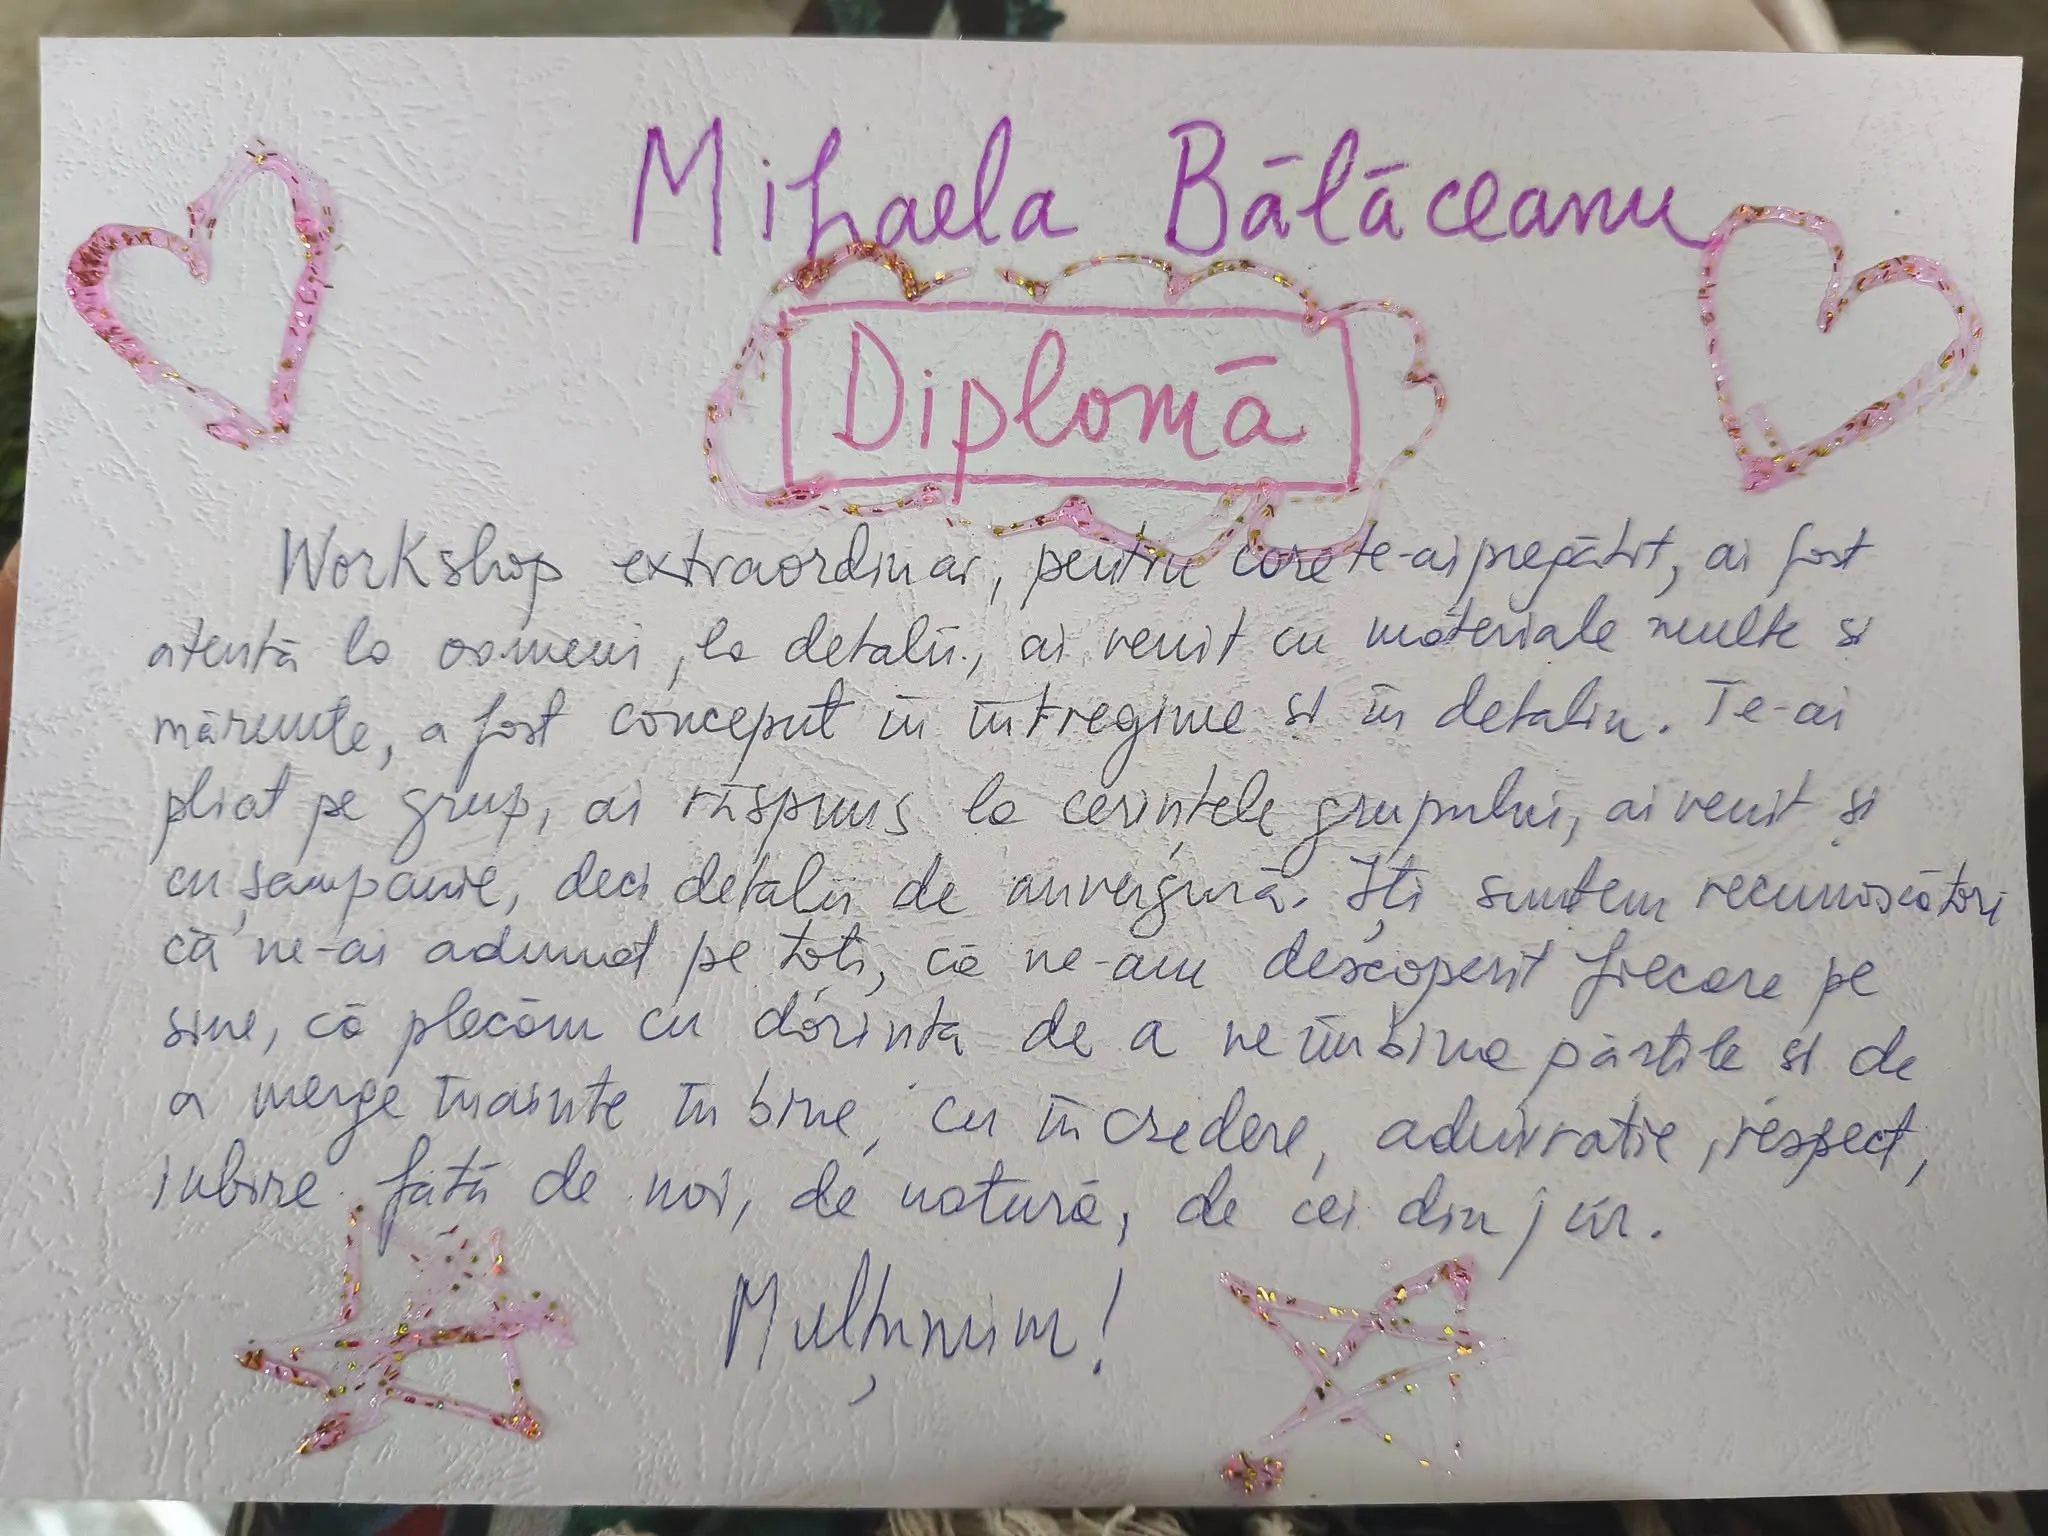 Mihaela Bălăceanu
Diplomă
Workshop extraordinar, pentru care te-ai pregătit, ai fost
atentă la oameni, la detalii, ai venit cu materiale multe si
mărunte, a fost conceput în întregime si în detaliu. Te-ai
pliat pe grup, ai răspuns la cerințele grupului, ai venit și
cu șampanie, deci detalii de anvergură. Iți suntem recunoscători
că ne-ai adunat pe toți, că ne-am descoperit fiecare pe
sine, că plecăm cu dorința de a ne îmbina părțile si de
a merge înainte în bine, cu încredere, admiratie, respect,
iubire fată de noi, de natură, de cei din jur.
Mulțumim!